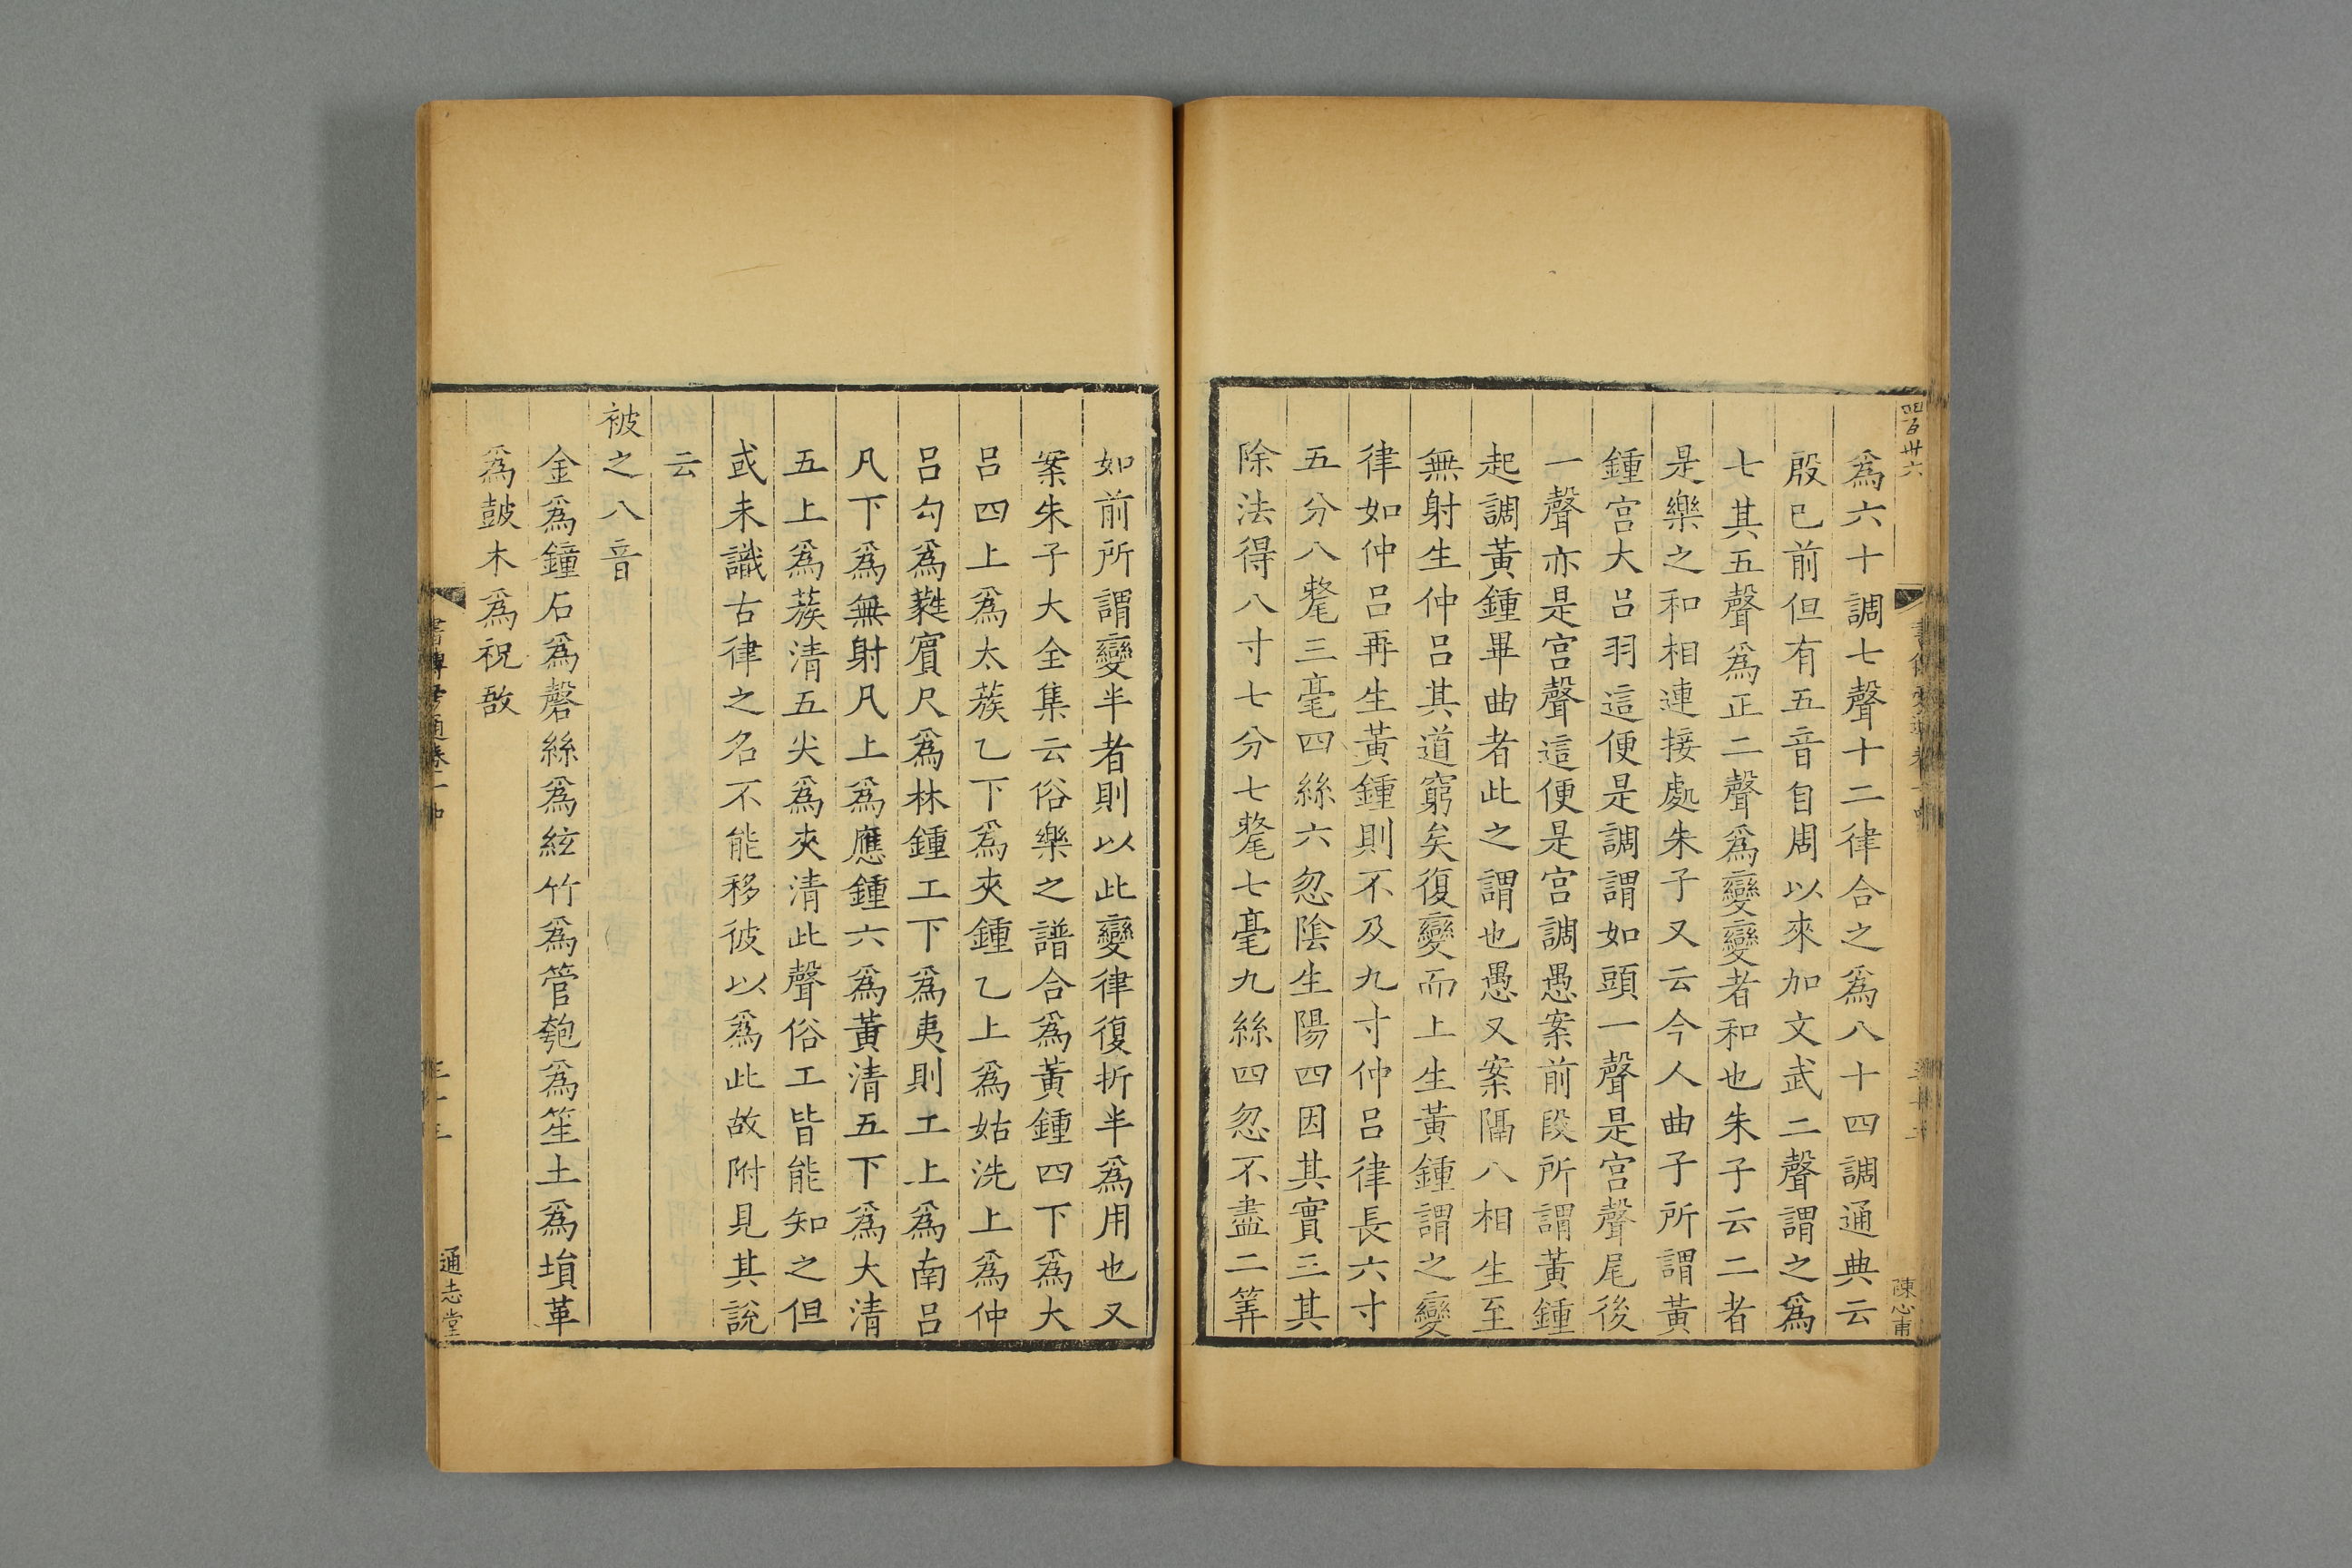 四百卅六
爲六十調七聲十二律合之爲八十四調通典云
殷已前但有五音自周以來加文武二聲謂之爲
七其五聲爲正二聲爲變變者和也朱子云二者
是樂之和相連接處朱子又云今人曲子所謂黃
鍾宮大呂羽這便是調謂如頭一聲是宮聲尾後
一聲亦是宮聲這便是宮調愚案前段所謂黃鍾
起調黃鍾畢曲者此之謂也愚又案隔八相生至
無射生仲呂其道窮矣復變而上生黃鍾謂之變
律如仲呂再生黃鍾則不及九寸仲呂律長六寸
五分八氂三毫四絲六忽陰生陽四因其實三其
除法得八寸七分七氂七毫九絲四忽不盡二筭
陳心甫
如前所謂變半者則以此變律復折半爲用也又
案朱子大全集云俗樂之譜合爲黃鍾四下爲大
呂四上爲太蔟乙下爲夾鍾乙上爲姑洗上爲仲
呂勾爲蕤賓尺爲林鍾工下爲夷則工上爲南呂
凡下爲無射凡上爲應鍾六爲黃清五下爲大清
五上爲蔟清五尖爲夾清此聲俗工皆能知之但
或未識古律之名不能移彼以爲此故附見其說
云
被之八音
金爲鐘石爲磬絲爲絃竹爲管匏爲笙土爲塤革
爲皷木爲柷敔
書傳旁通卷一中
通志堂